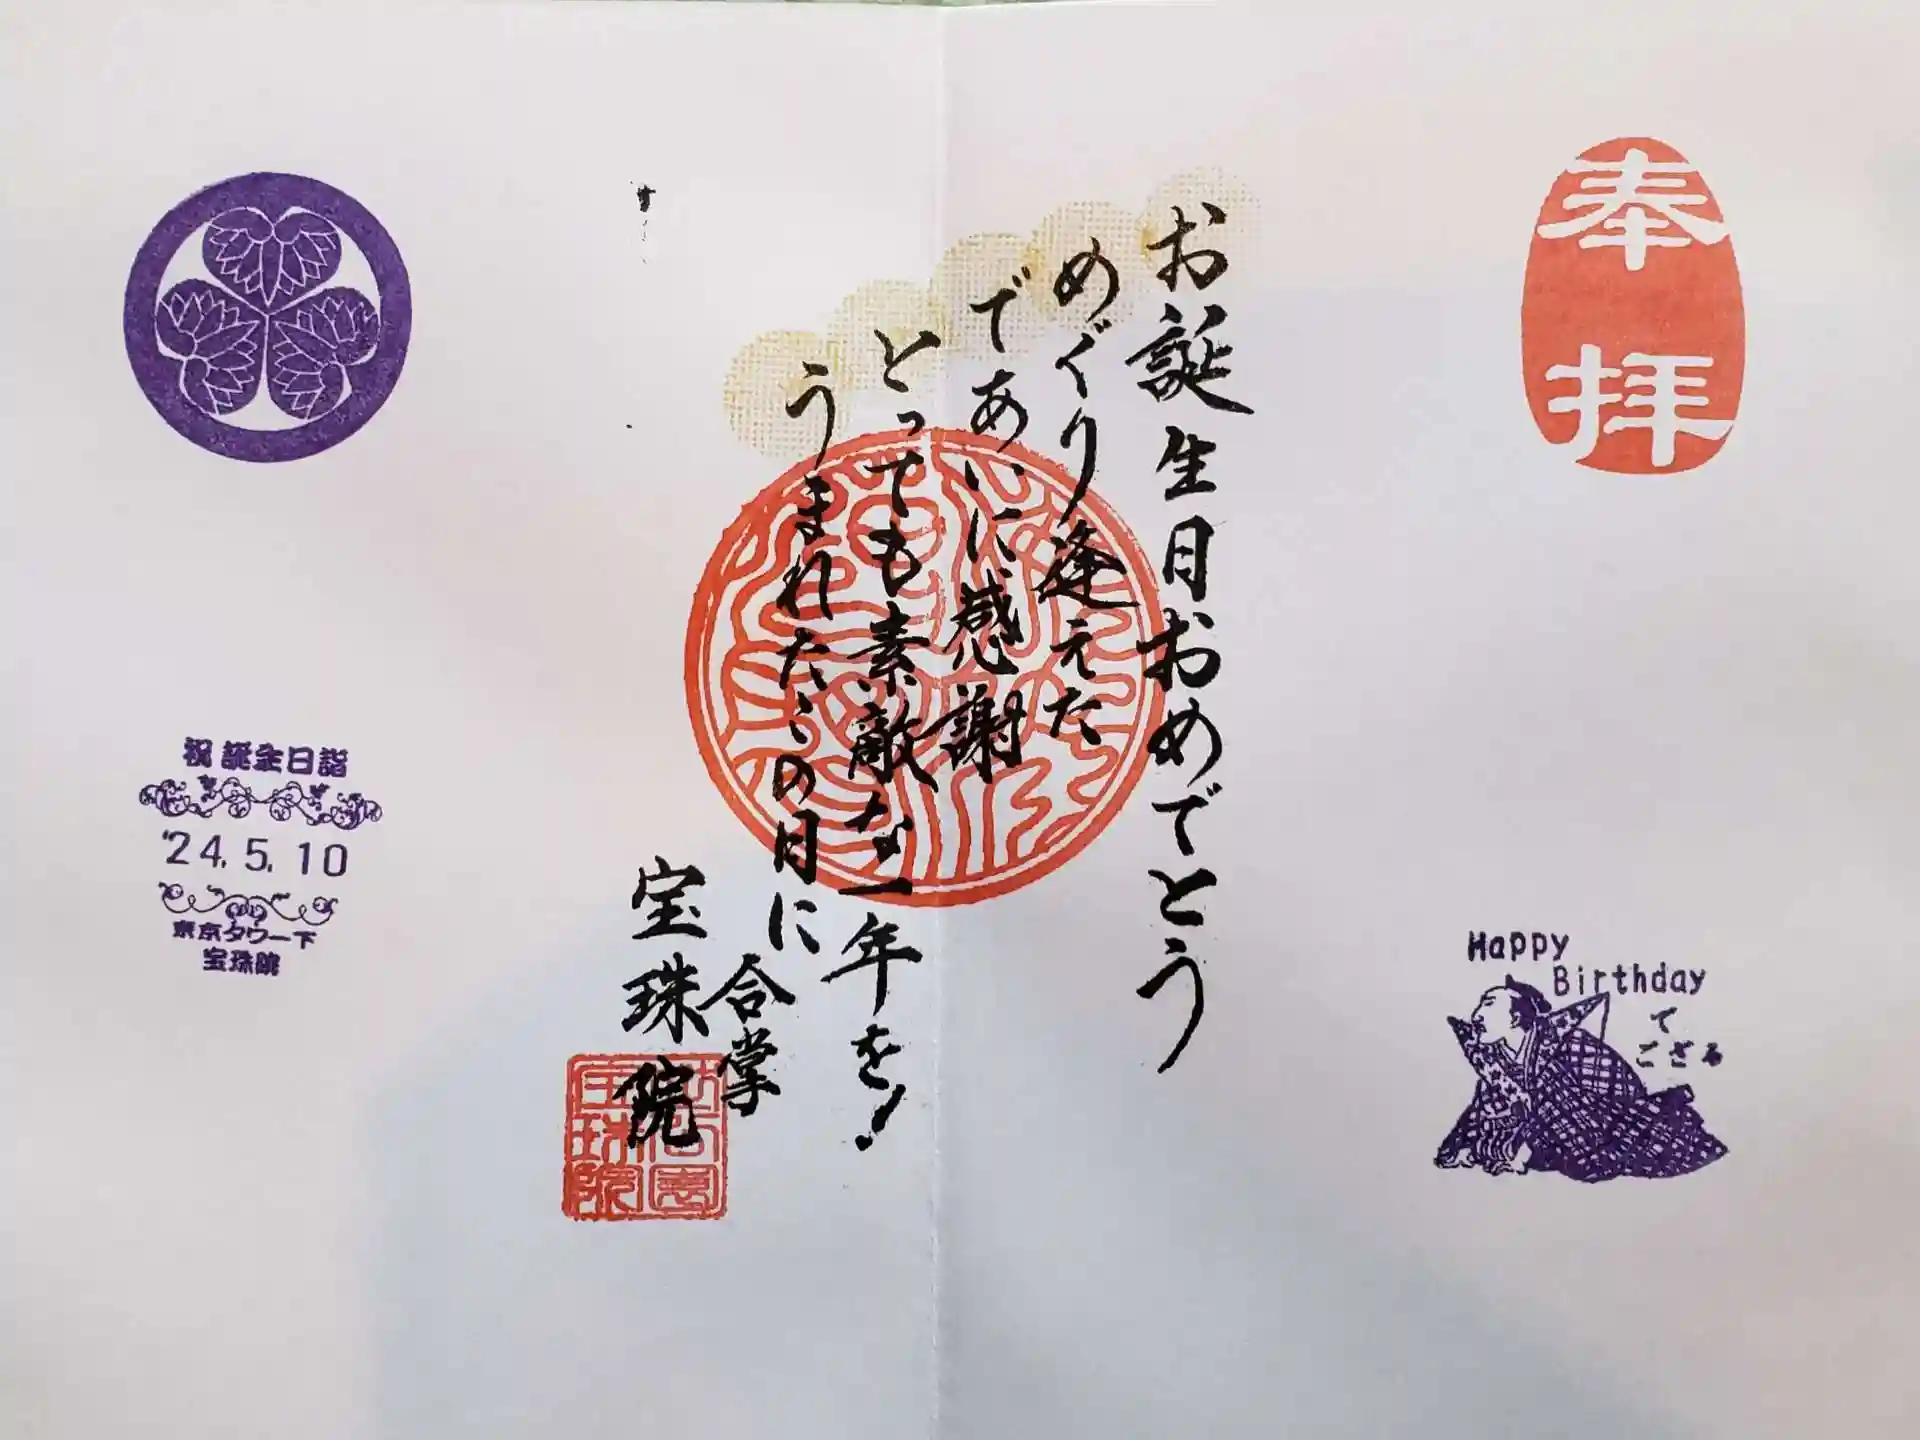 奉拝
お誕生日おめでとう
めぐり逢えた
であいに感謝
とっても素敵な一年を!
うまれたこの日に
合掌
宝珠院
祝 誕生日詣
'24.5.10
東京タワー下
宝珠院
Happy
Birthday
で
ござる